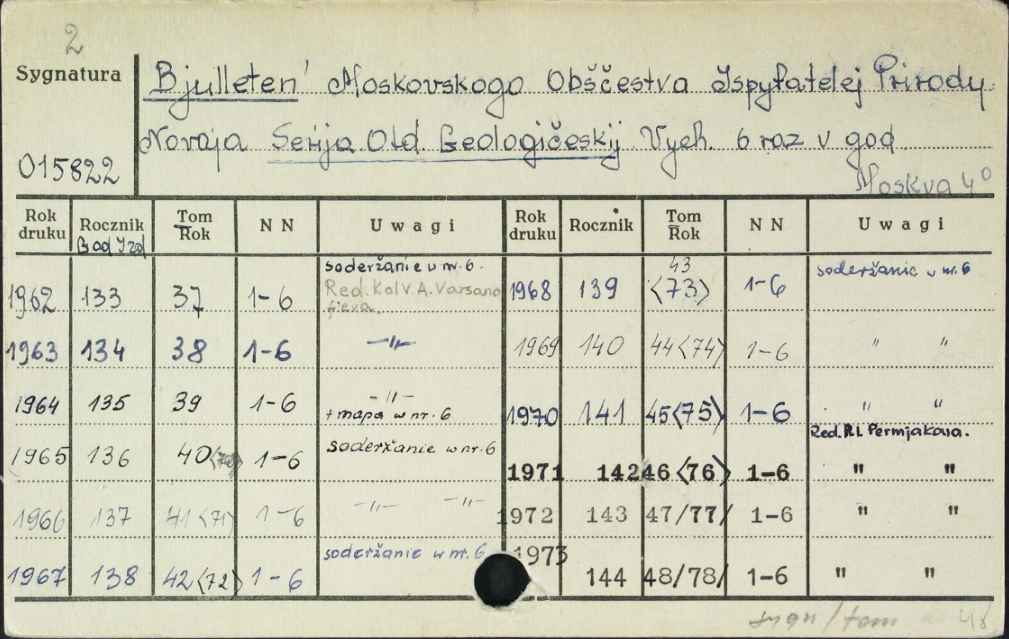 2
Sygnatura
Bjulleten' Moskovskogo Obščestva Ispytatelej Prirody.
Novaja Serija Otd. Geologičeskij Vych. 6 raz v god
015822
Moskva 4°
Rok druku Rocznik Tom Rok N N Uwagi Rok druku Rocznik Tom Rok N N Uwagi
God Izd
1962 133 37 1-6 soderžanie v nr. 6. Red. Kol V. A. Varsanofieva. 1968 139 43 <73> 1-6 soderžanie v nr. 6
1963 134 38 1-6 -"- 1969 140 44<74> 1-6 " "
1964 135 39 1-6 -"- + mapa w nr. 6 1970 141 45<75> 1-6 " "
1965 136 40 1-6 soderžanie w nr. 6 1971 142 46 <76> 1-6 Red. P. I. Permjakova. " "
1966 137 41<71> 1-6 -"- -"- 1972 143 47/77/ 1-6 " "
1967 138 42<72> 1-6 soderžanie w nr. 6 1973 144 48/78/ 1-6 " "
sygn/tom 48